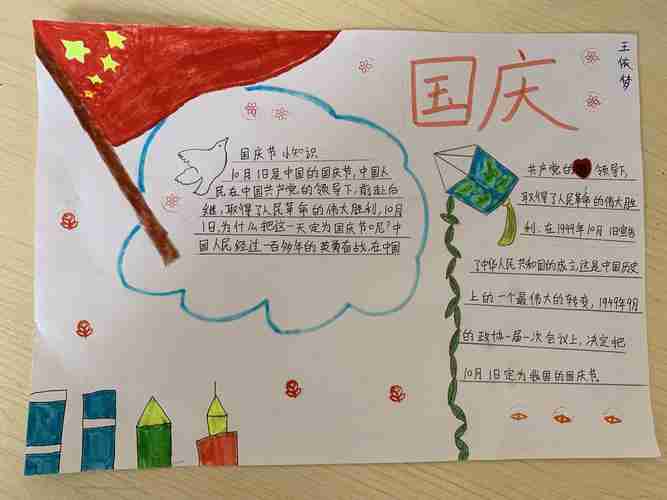 国庆
王依梦
国庆节小知识
10月1日是中国的国庆节,中国人
民在中国共产党的领导下,前赴后
继,取得了人民革命的伟大胜利,10月
1日,为什么把这一天定为国庆节呢?中
国人民经过一百多年的英勇奋战,在中国
共产党的领导下,
取得了人民革命的伟大胜
利,在1949年10月1日宣告
了中华人民共和国的成立,这是中国历史
上的一个最伟大的转变,1949年9月
的政协一届一次会议上,决定把
10月1日定为我国的国庆节。